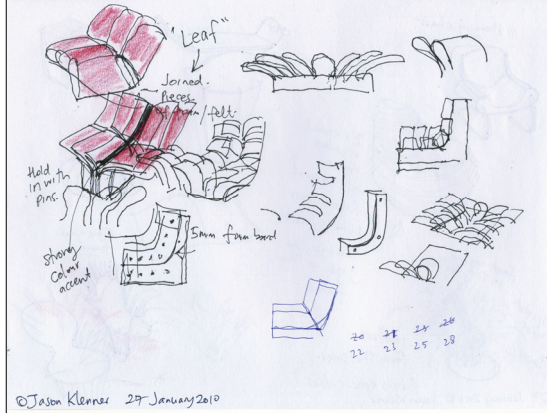 "Leaf"
Joined
Pieces
of foam/felt
Hold
in with
pins.
5mm foam board
strong
colour
accent
20 21 25 26
22 23 25 28
©Jason Klenner 27 January 2010